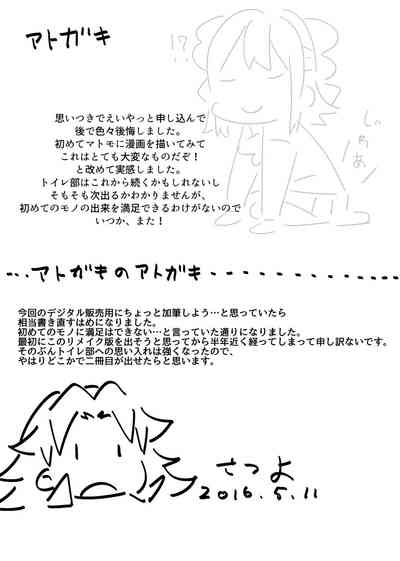 アトガキ
!?
思いつきでえいやっと申し込んで
後で色々後悔しました。
初めてマトモに漫画を描いてみて
これはとても大変なものだぞ!
と改めて実感しました。
トイレ部はこれから続くかもしれないし
そもそも次出るかわかりませんが、
初めてのモノの出来を満足できるわけがないので
いつか、また!
・・・アトガキのアトガキ・・・・・・・・・・・・・
今回のデジタル販売用にちょっと加筆しよう…と思っていたら
相当書き直すはめになりました。
初めてのモノに満足はできない…と言っていた通りになりました。
最初にこのリメイク版を出そうと思ってから半年近く経ってしまって申し訳ないです。
そのぶんトイレ部への思い入れは強くなったので、
やはりどこかで二冊目が出せたらと思います。
さつよ
2016.5.11